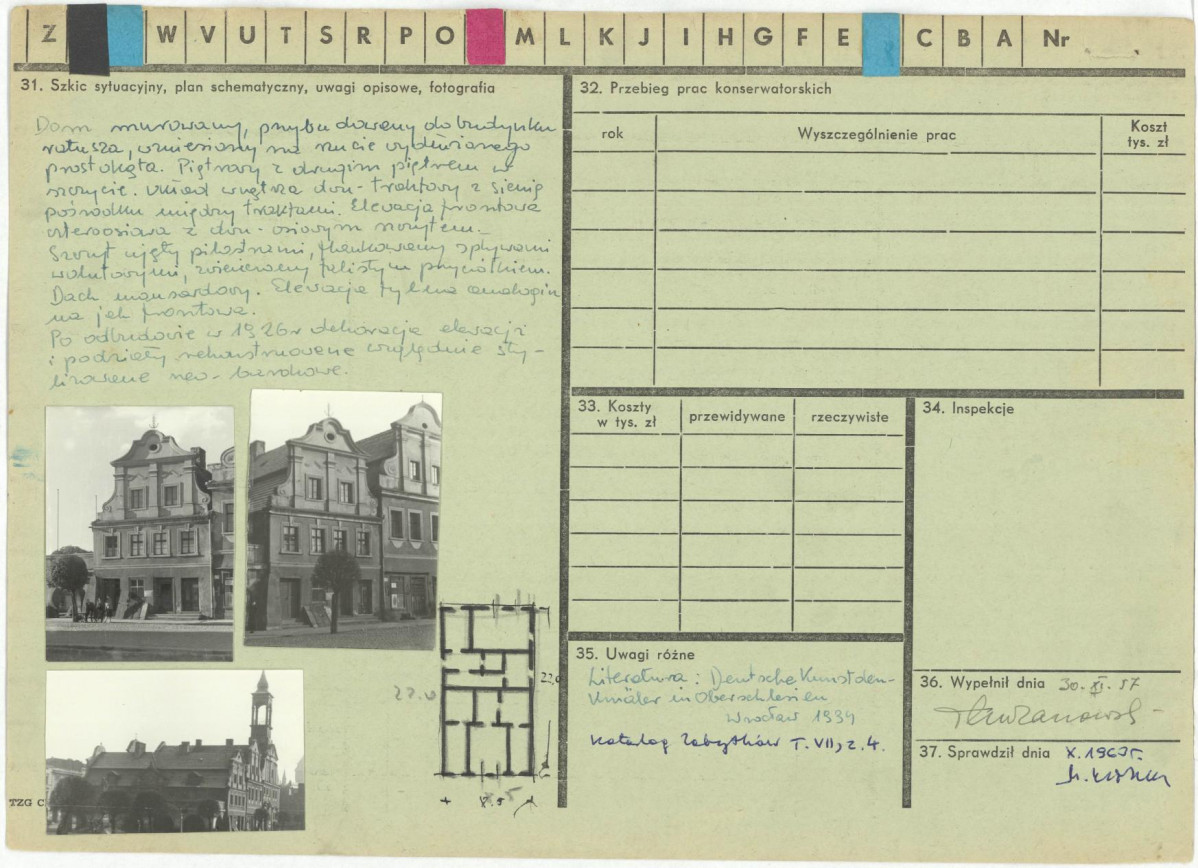 Z W V U T S R P O M L K J I H G F E C B A Nr
31. Szkic sytuacyjny, plan schematyczny, uwagi opisowe, fotografia
Dom murowany, przybudowany do budynku
ratusza, wzniesiony na rzucie wydłużonego
prostokąta. Piętrowy z drugim piętrem w
szczycie. Układ wnętrza dwu-traktowy z sienią
pośrodku między traktami. Elewacja frontowa
czteroosiowa z dwu-osiowym szczytem.
Szczyt ujęty pilastrami, flankowany spływami
wolutowymi, zwieńczony falistym przyczółkiem.
Dach mansardowy. Elewacja tylna analogicz
na jak frontowa.
Po odbudowie w 1926 r dekoracja elewacji
i podziały rekonstruowane względnie sty-
lizowane neo-barokowe.
22.0
22,0
8.55
TZG C
32. Przebieg prac konserwatorskich
rok
Wyszczególnienie prac
Koszt
tys. zł
33. Koszty
w tys. zł
przewidywane
rzeczywiste
34. Inspekcje
35. Uwagi różne
Literatura: Deutsche Kunstden-
kmäler in Oberschlesien
Wrocław 1939
Katalog Zabytków T. VII, z. 4.
36. Wypełnił dnia 30. XI. 57
37. Sprawdził dnia X. 1967r.